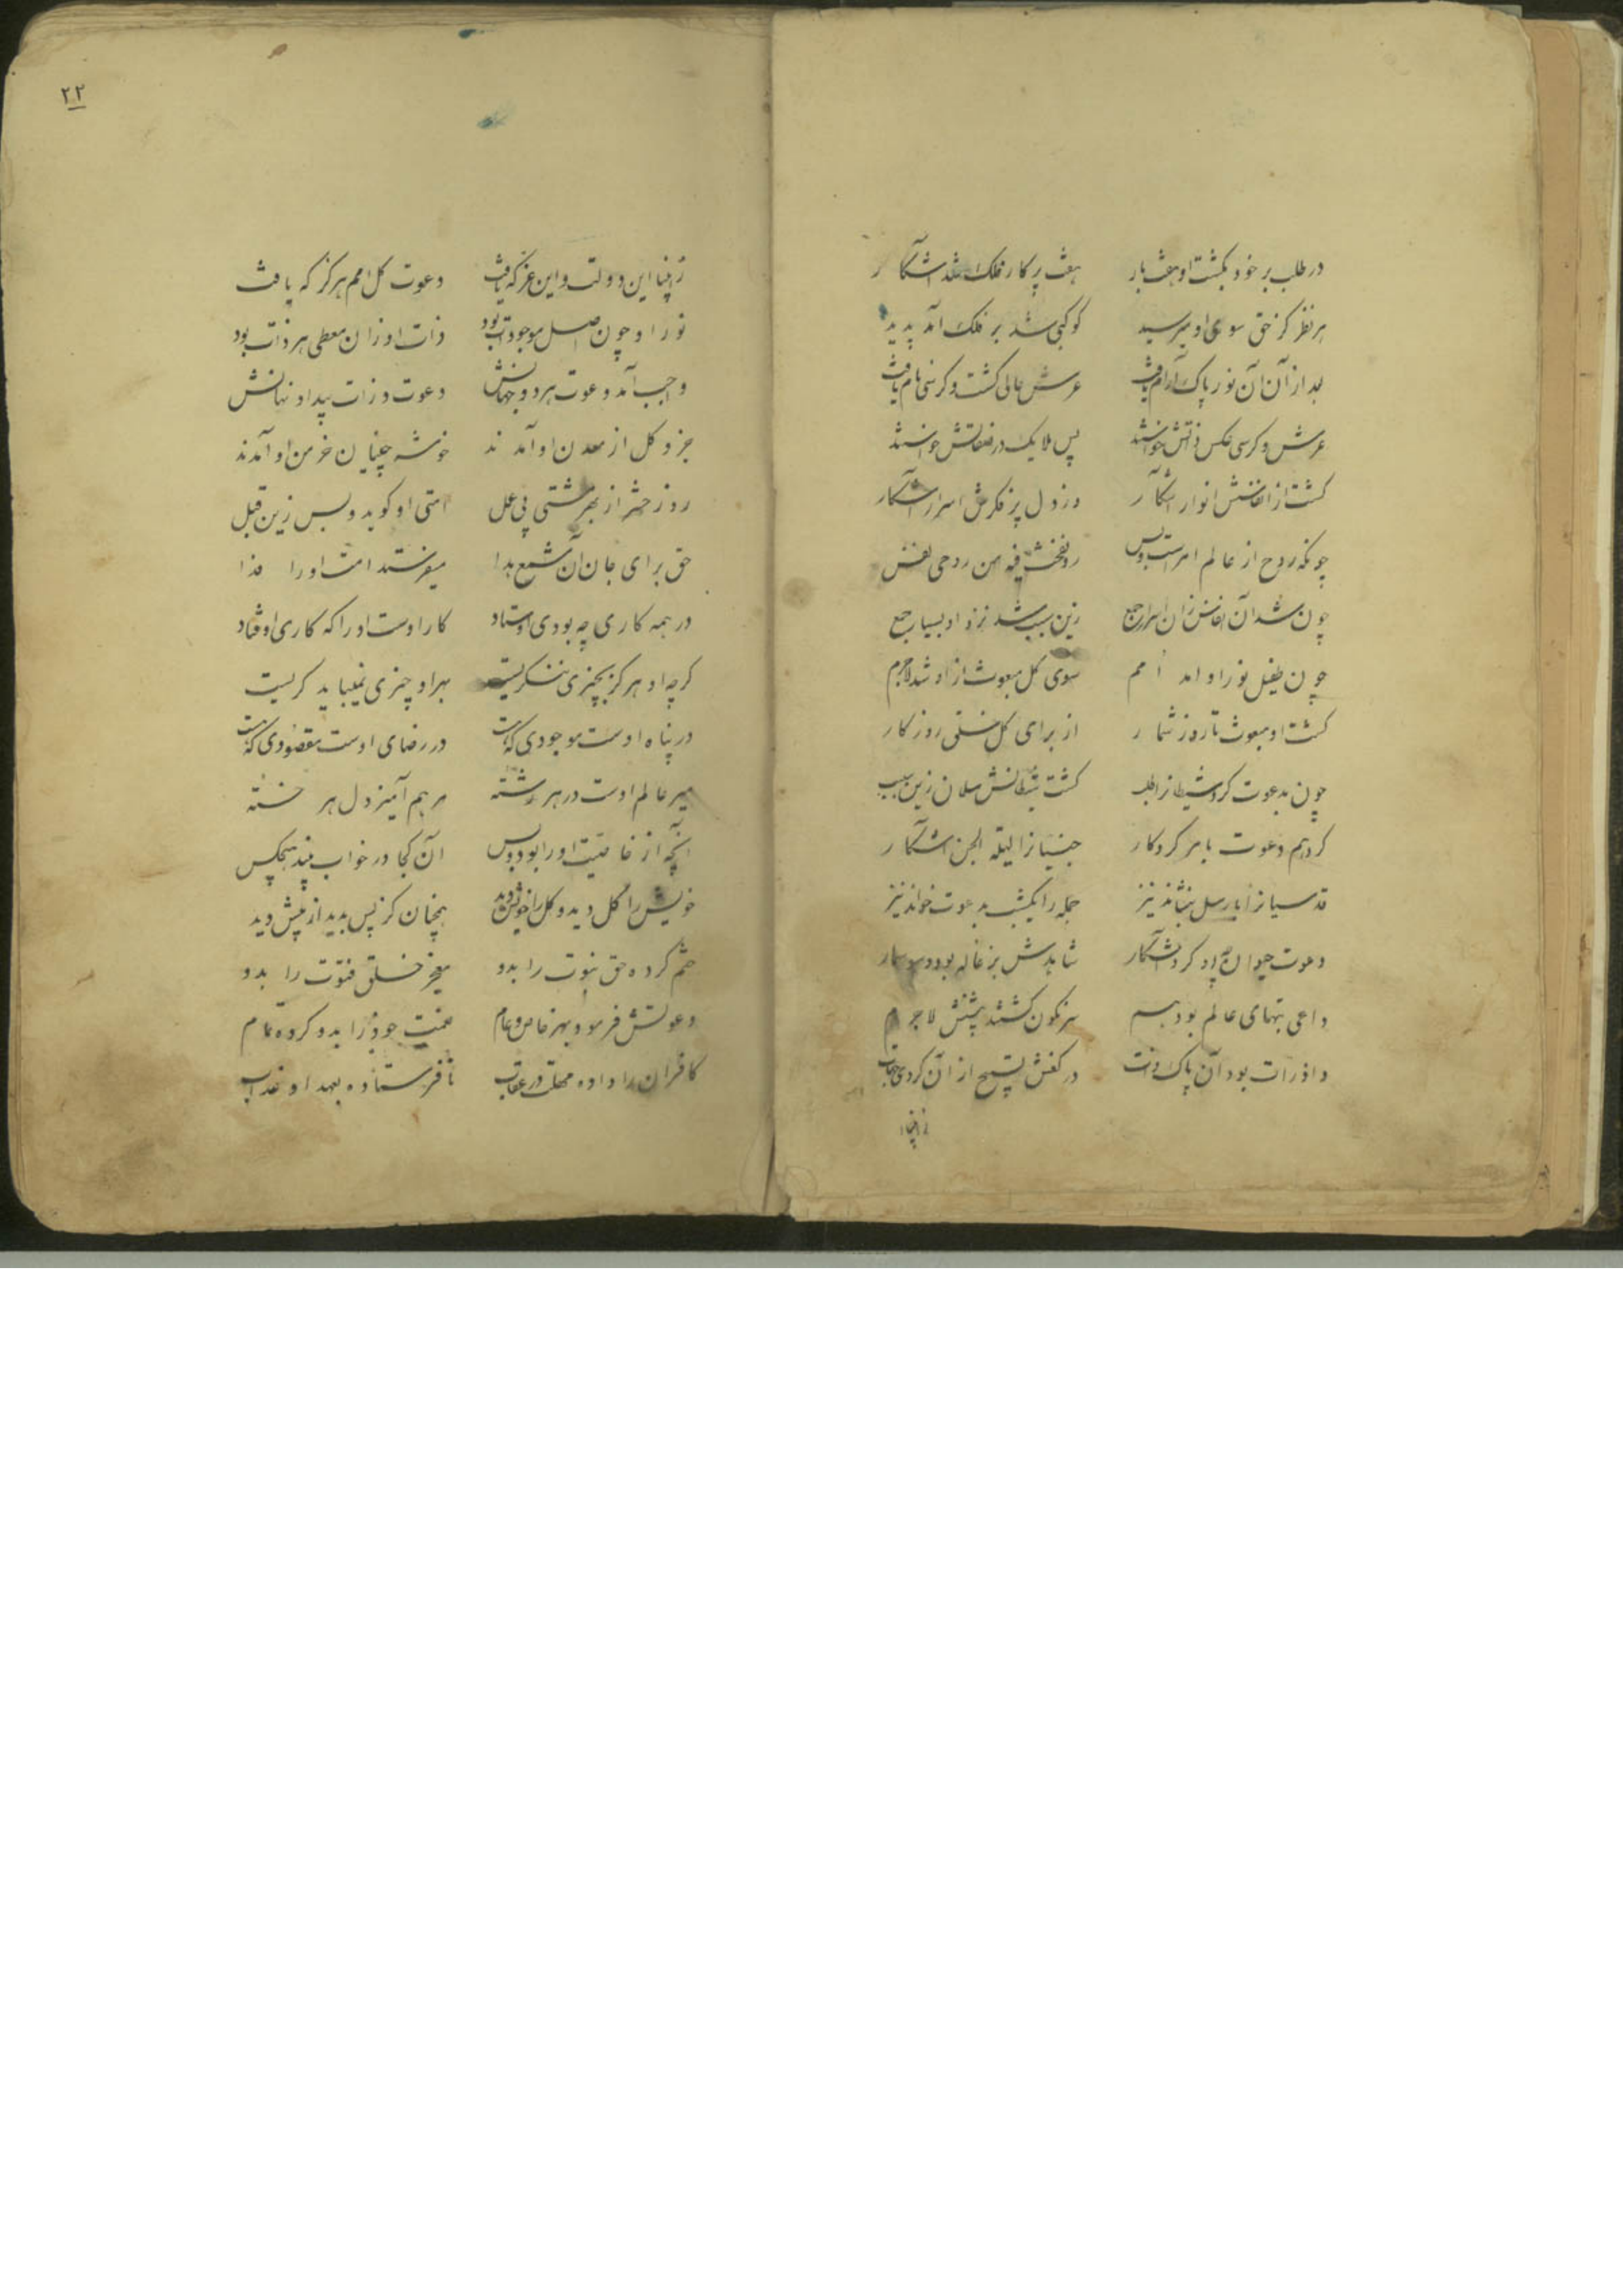 در طلب بر خود بکشت او هفت بار هفت پرکار فلک شد آشکار
هر نظر کز حق سوی او میرسید کوکبی شد بر فلک آمد پدید
بعد از آن آن نور پاک آرام یافت عرش عالی کشت و کرسی نام یافت
عرش و کرسی عکس ذاتش خواستند پس ملایک در صفاتش خواستند
کشت از انفاسش انوار آشکار وز دل پر فکرش اسرار آشکار
چونکه روح از عالم امرست و بس رو نفخت فیه من روحی نفس
چون شد آن انفاس زان اسرار جمع زین سبب شد نزد او بسیار جمع
چون طفیل نور او آمد امم سوی کل مبعوث از او شد لاجرم
کشت او مبعوث تا روز شمار از برای کل خلق روزکار
چون بدعوت کرد شیطانرا طلب کشت شیطانش مسلمان زین سبب
کرد هم دعوت بامر کردکار جنیانرا لیلة الجن آشکار
قدسیانرا با رسل بنشاند نیز جمله را یکشب بدعوت خواند نیز
دعوت حیوان چو او کرد آشکار شاهدش بزغاله بود و سوسمار
داعی بتهای عالم بود هم سرنکون کشتند پیشش لاجرم
داعی ذرات بود آن پاک ذات در کفش تسبیح از آن کردی حصات
زانبیا
۲۲
زانبیا این دولت و این عز که یافت دعوت کل امم هرکز که یافت
نور او چون اصل موجودات بود ذات او زان معطی هر ذات بود
واجب آمد دعوت هر دو جهانش دعوت ذرات پیدا و نهانش
جزو کل از معدن او آمدند خوشه چینان خرمن او آمدند
روز حشر از بهر مشتی بی عمل امتی او کوید و بس زین قبل
حق برای جان آن شمع هدا میفرستد امت او را فدا
در همه کاری چو بودی اوستاد کار اوست او را که کاری اوفتاد
کرچه او هرکز بچیزی ننکریست بهر او چیزی نمیباید کریست
در پناه اوست موجودی که هست در رضای اوست مقصودی که هست
میر عالم اوست در هر رشته مرهم آمیز دل هر خسته
آنچه از خاصیت او را بود و بس آن کجا در خواب بیند هیچکس
خویش را کل دید و کل را خویش دید همچنان کز پس بدید از پیش دید
ختم کرده حق نبوت را بدو معجز خلق فتوت را بدو
دعوتش فرمود بهر خاص و عام نعمت خود را بدو کرده تمام
کافران را داده مهلت در عقاب نافرستاده بعهد او عذاب